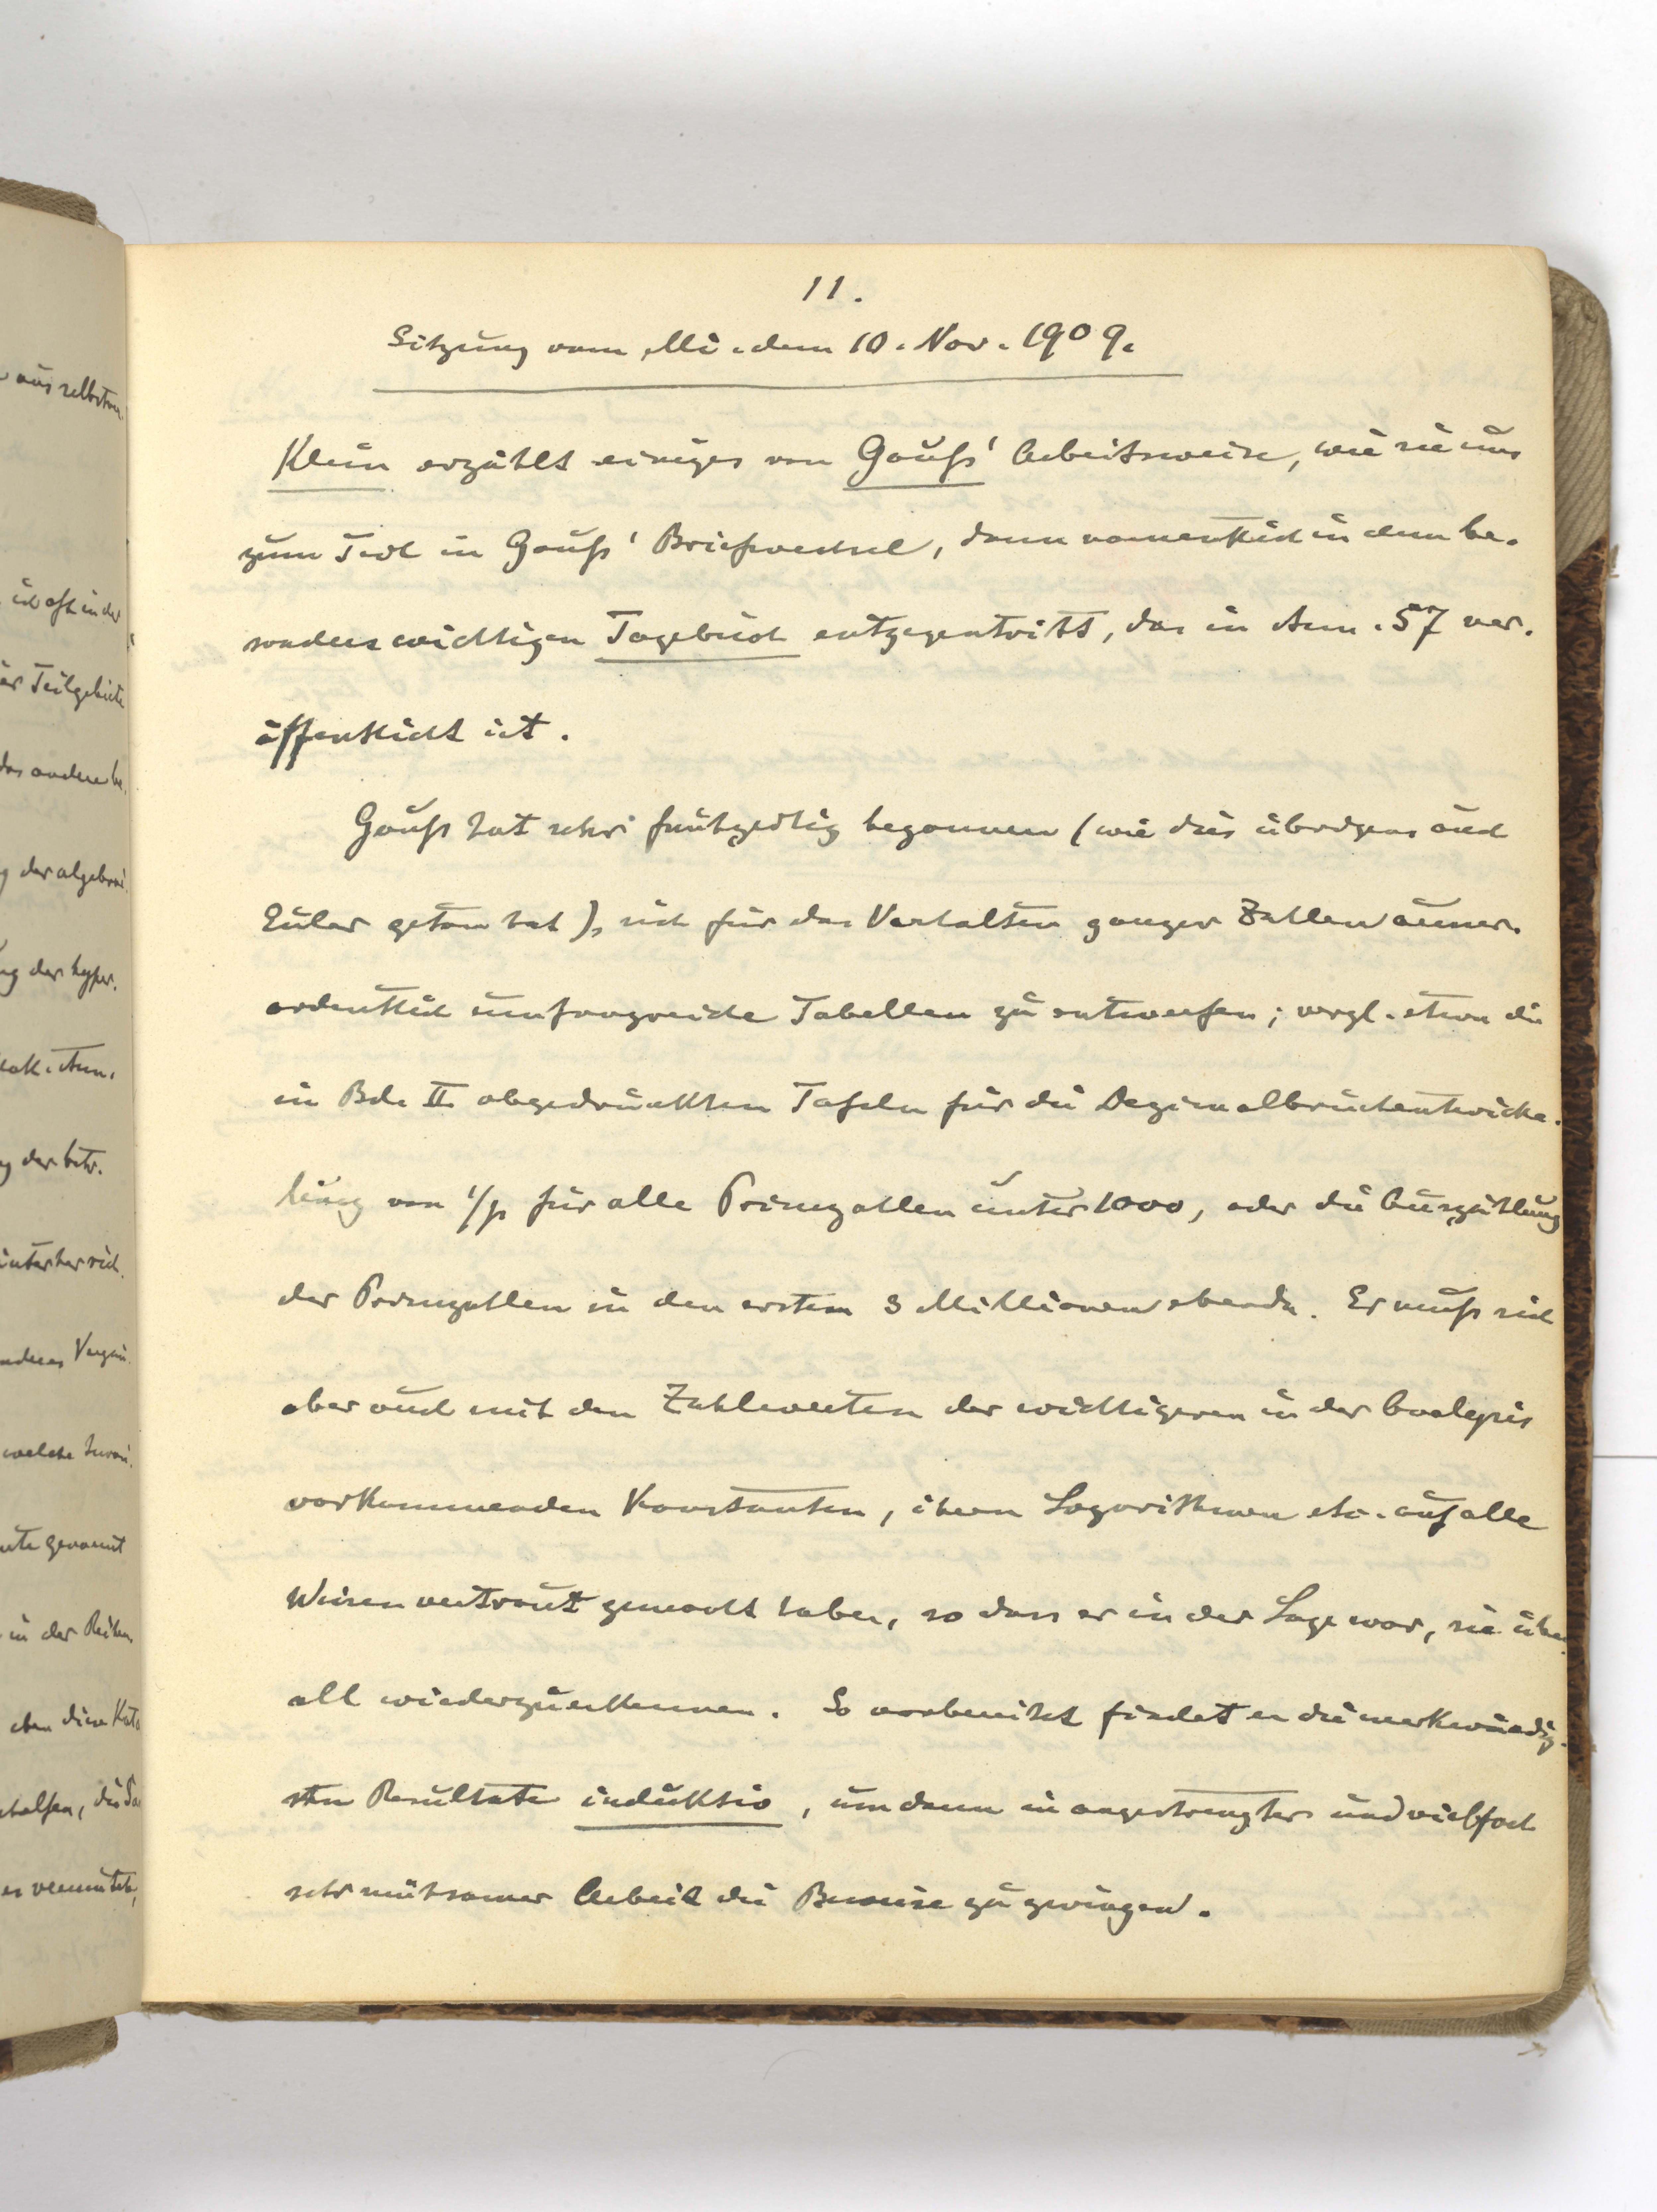 11.
Sitzung vom Mi. dem 10. Nov. 1909.
Klein erzählt einiges von Gauß' Arbeitsweise, wie sie uns
zum Teil in Gauß' Briefwechsel, dann namentlich in dem be-
sonders wichtigen Tagebuch entgegentritt, das in Ann. 57 ver-
öffentlicht ist.
Gauß hat sehr frühzeitig begonnen (wie dies übrigens auch
Euler getan hat), sich für das Verhalten ganzer Zahlen ausser-
ordentlich umfangreiche Tabellen zu entwerfen; vergl. etwa die
in Bd. II abgedruckten Tafeln für die Dezimalbruchentwicke-
lung von 1/p für alle Primzahlen unter 1000, oder die Auszählung
der Primzahlen in den ersten 3 Millionen ebenda. Er muß sich
aber auch mit den Zahlwerten der wichtigeren in der Analysis
vorkommenden Konstanten, ihren Logarithmen etc. auf alle
Weisen vertraut gemacht haben, so dass er in der Lage war, sie über-
all wiederzuerkennen. So vorbereitet findet er die merkwürdig-
sten Resultate induktiv, um dann in angestrengter und vielfach
sehr mühsamer Arbeit die Beweise zu zwingen.
aus selbstän
ich oft in der
Teilgebiete
das andere be-
der algebrai-
der hyper-
Ann.
der betr.
welche
genannt
in der Reihen-
eben diese
vermutete,